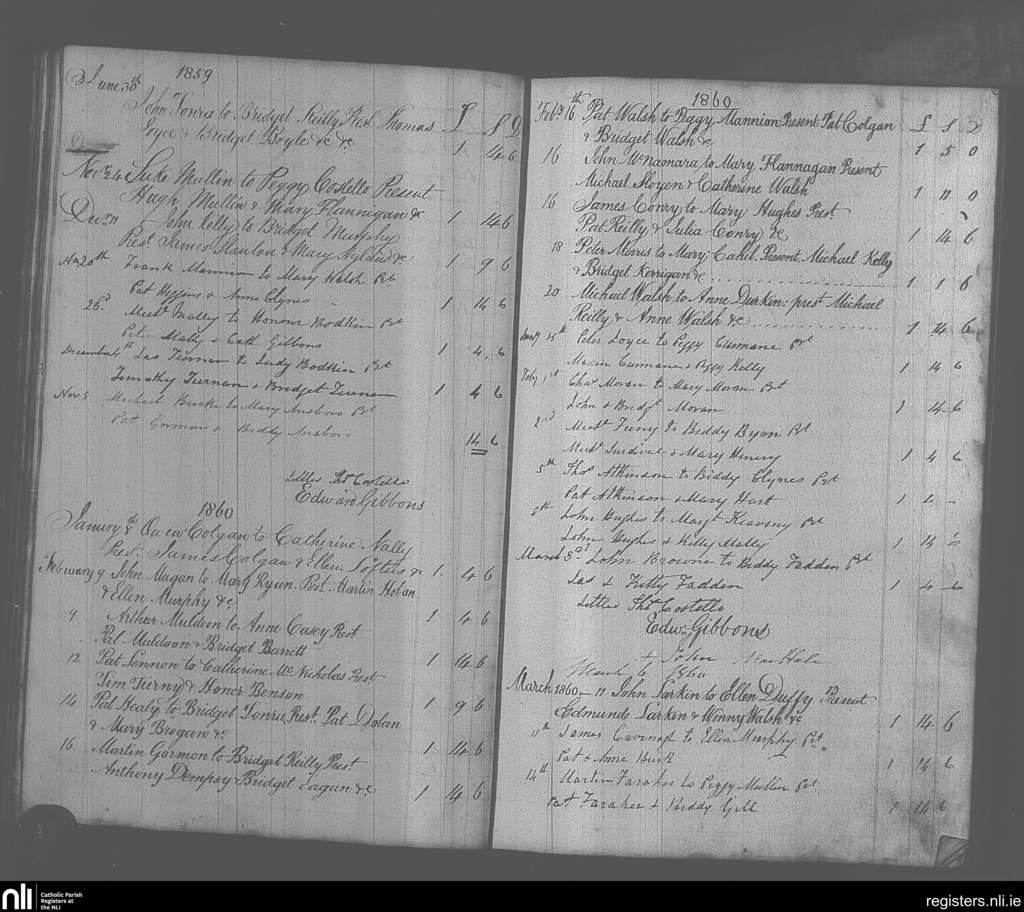 1859
June 30th
John Tonra to Bridget Reilly Prest Thomas £ S D
Joyce & Bridget Boyle &c &c 1 14 6
Novr 24 Luke Mullin to Peggy Costello Present
Hugh Mullin & Mary Flannigan &c 1 14 6
John Kelly to Bridget Murphy
Prest James & Mary &c 1 9 6
Nov 20th Frank Mannion to Mary Walsh Pt
Pat Higgins & Anne Clynes 1 14 6
26d Michl Malley to Honour Bodkin Pt
Peter Mally & Cath Gibbons 1 4 6
December 4th Jas Tiernan to Judy Bodkin Pst
Timothy Tiernan & Bridget Tiernan 1 4 6
Nov 5 Michael Burke to Mary Pt
Pat Gorman & Biddy 14 6
Settled Thos Costello
Edward Gibbons
1860
January 8th Owen Colgan to Catherine Nally
Prest. James Colgan & Ellen Loftus &c 1. 4 6
February 9 John Mugan to Mary Ryan. Prest. Martin Hoban
& Ellen Murphy &c. 1 4 6
9 Arthur Muldoon to Anne Casey Prest
Pat Muldoon & Bridget Barrett 1 14 6
12 Pat Lennon to Catherine McNicholas Prest
Tim Tierny & Honor Benson 1 9 6
14 Pat Healy to Bridget Tonra Prest. Pat Dolan
& Mary Brogan &c 1 14 6
16 Martin Gormon to Bridget Reilly Prest
Anthony Dempsy & Bridget Eagan &c 1 14 6
1860
Feby 16th Pat Walsh to Peggy Mannion Present Pat Colgan £ S D
& Bridget Walsh &c 1 5 0
16 John McNamara to Mary Flannagan Present
Michael & Catherine Walsh 1 11 0
16 James Conry to Mary Hughes Prest
Pat Reilly & Julia Conry &c 1 14 6
18 Peter Morris to Mary Cahil. Present Michael Kelly
& Bridget Kerrigan &c 1 1 6
20 Michael Walsh to Anne Durkin: prest Michael
Reilly & Anne Walsh &c 1 14 6
15th Peter Joyce to Peggy Cunnane Pt
Martin Cunnane & Peggy Kelly 1 14 6
Feby 1st Chas Moran to Mary Moran Pt
John & Bridgt Moran 1 14 6
2nd Michl Feeny to Biddy Byon Pt
Michl & Mary Henery 1 4 6
5th Thos Atkinson to Biddy Clynes Pst
Pat Atkinson & Mary Hart 1
John Hughes to Margt Keaveny Pt
John Hughes & Kitty Malley 1 14 6
March John Browne to Biddy Fadden Pt
Jas & Kitty Fadden 1 4 6
Settled Thos Costello
Edwd Gibbons
+ John MacHale
March 1860
March 1860 – 11 John Larkin to Ellen Duffy Present
Edmund Larkin & Winny Walsh &c 1 14 6
11th James Cavenagh to Ellen Murphy Pt.
Pat & Anne Burk 1 14 6
14th Martin Faraher to Peggy Mullin Pt
Pat Faraher & Biddy Gill 1 14 6
nli
Catholic Parish
Registers at
the NLI
registers.nli.ie